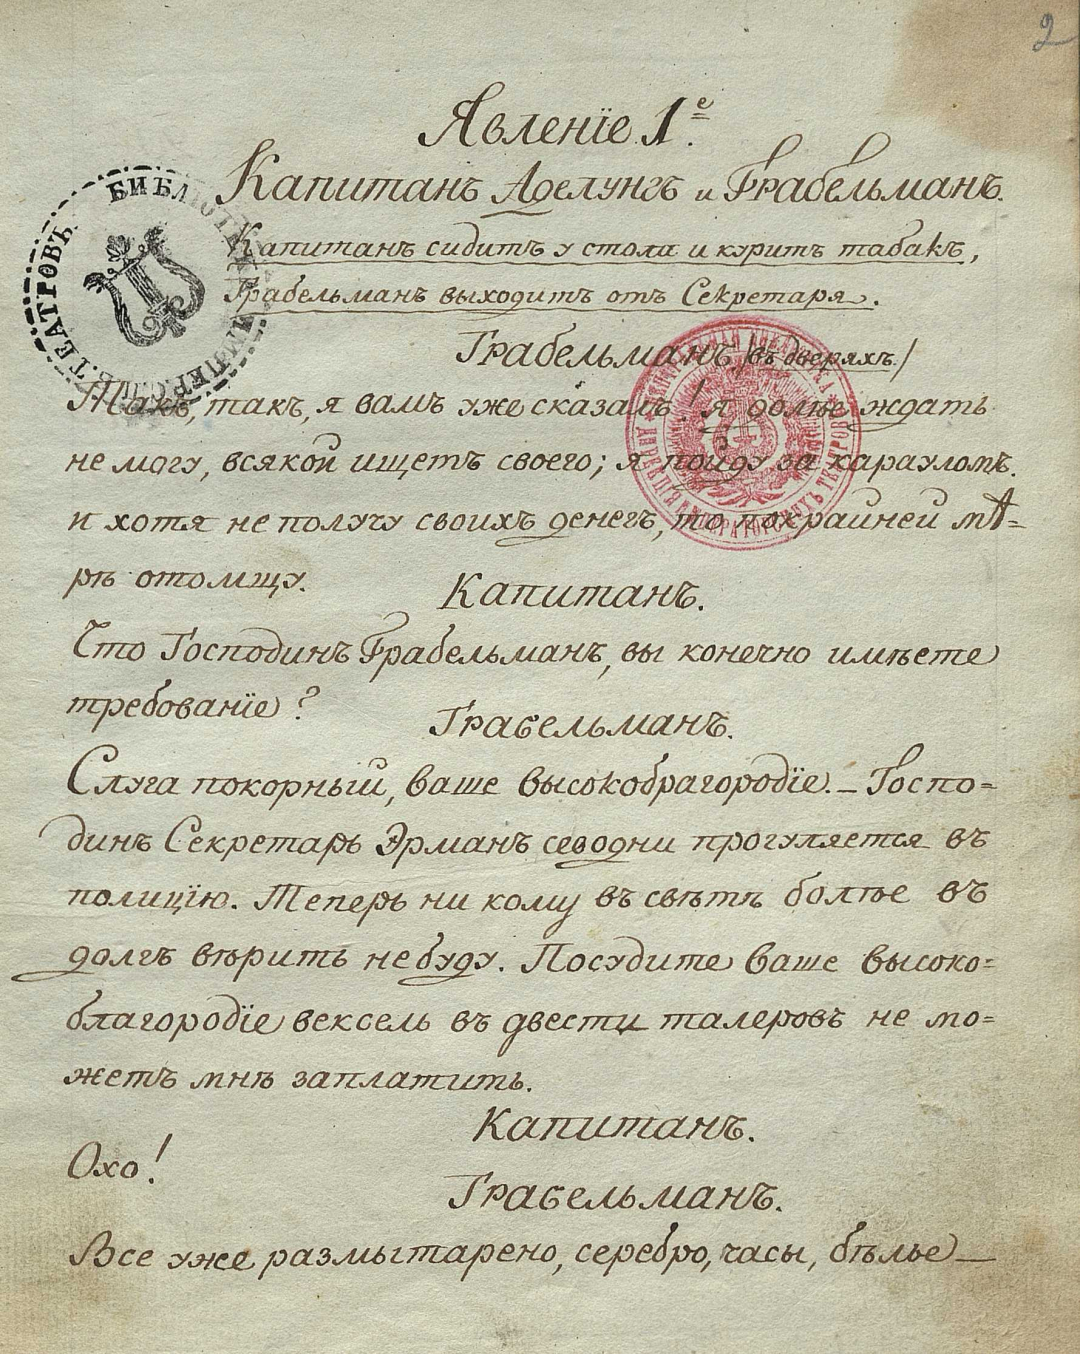 2
Явленіе 1е.
Капитанъ Аделунгъ и Грабельманъ.
Капитанъ сидитъ у стола и куритъ табакъ,
Грабельманъ выходитъ отъ Секретаря.
БИБЛІОТЕКА ИМПЕРСК. ТЕАТРОВЪ
Грабельманъ /въ дверяхъ./
Такъ, такъ, я вамъ уже сказалъ! я долѣе ждать
не могу, всякой ищетъ своего; я пойду за карауломъ.
и хотя не получу своихъ денегъ, то покрайней мѣ-
рѣ отомщу.
Капитанъ.
Что Господинъ Грабельманъ, вы конечно имѣете
требованіе?
Грабельманъ.
Слуга покорный, ваше высокобрагородіе. — Госпо=
динъ Секретарь Эрманъ севодни прогуляется въ
полицію. Теперь ни кому въ свѣтѣ болѣе въ
долгъ вѣрить небуду. Посудите ваше высоко=
благородіе вексель въ двести талеровъ не мо=
жетъ мнѣ заплатить.
Капитанъ.
Охо!
Грабельманъ.
Все уже размытарено, серебро, часы, бѣлье —